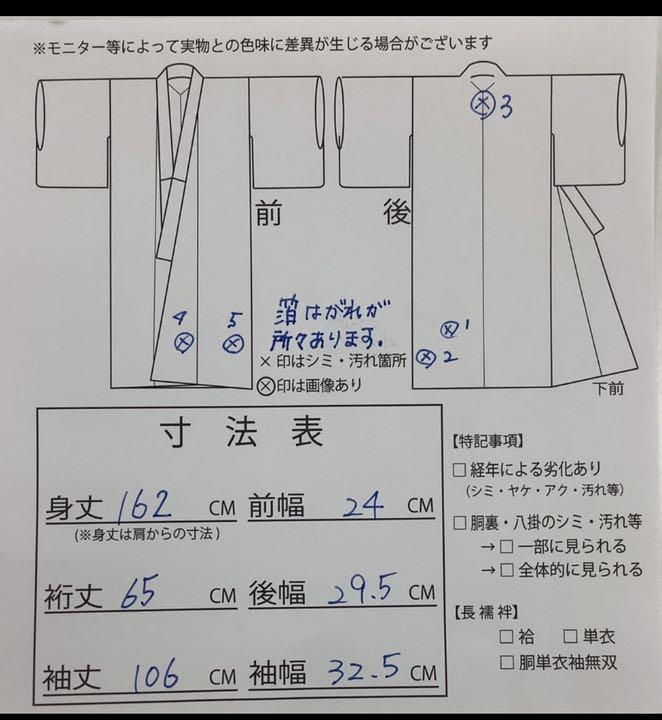 ※モニター等によって実物との色味に差異が生じる場合がございます
3
前 後
4 5 箔はがれが
所々あります。
1
2
×印はシミ・汚れ箇所
⊗印は画像あり
下前
寸法表
身丈 162 CM 前幅 24 CM
(※身丈は肩からの寸法)
裄丈 65 CM 後幅 29.5 CM
袖丈 106 CM 袖幅 32.5 CM
【特記事項】
□ 経年による劣化あり
(シミ・ヤケ・アク・汚れ等)
□ 胴裏・八掛のシミ・汚れ等
→□ 一部に見られる
→□ 全体的に見られる
【長襦袢】
□ 袷 □ 単衣
□ 胴単衣袖無双